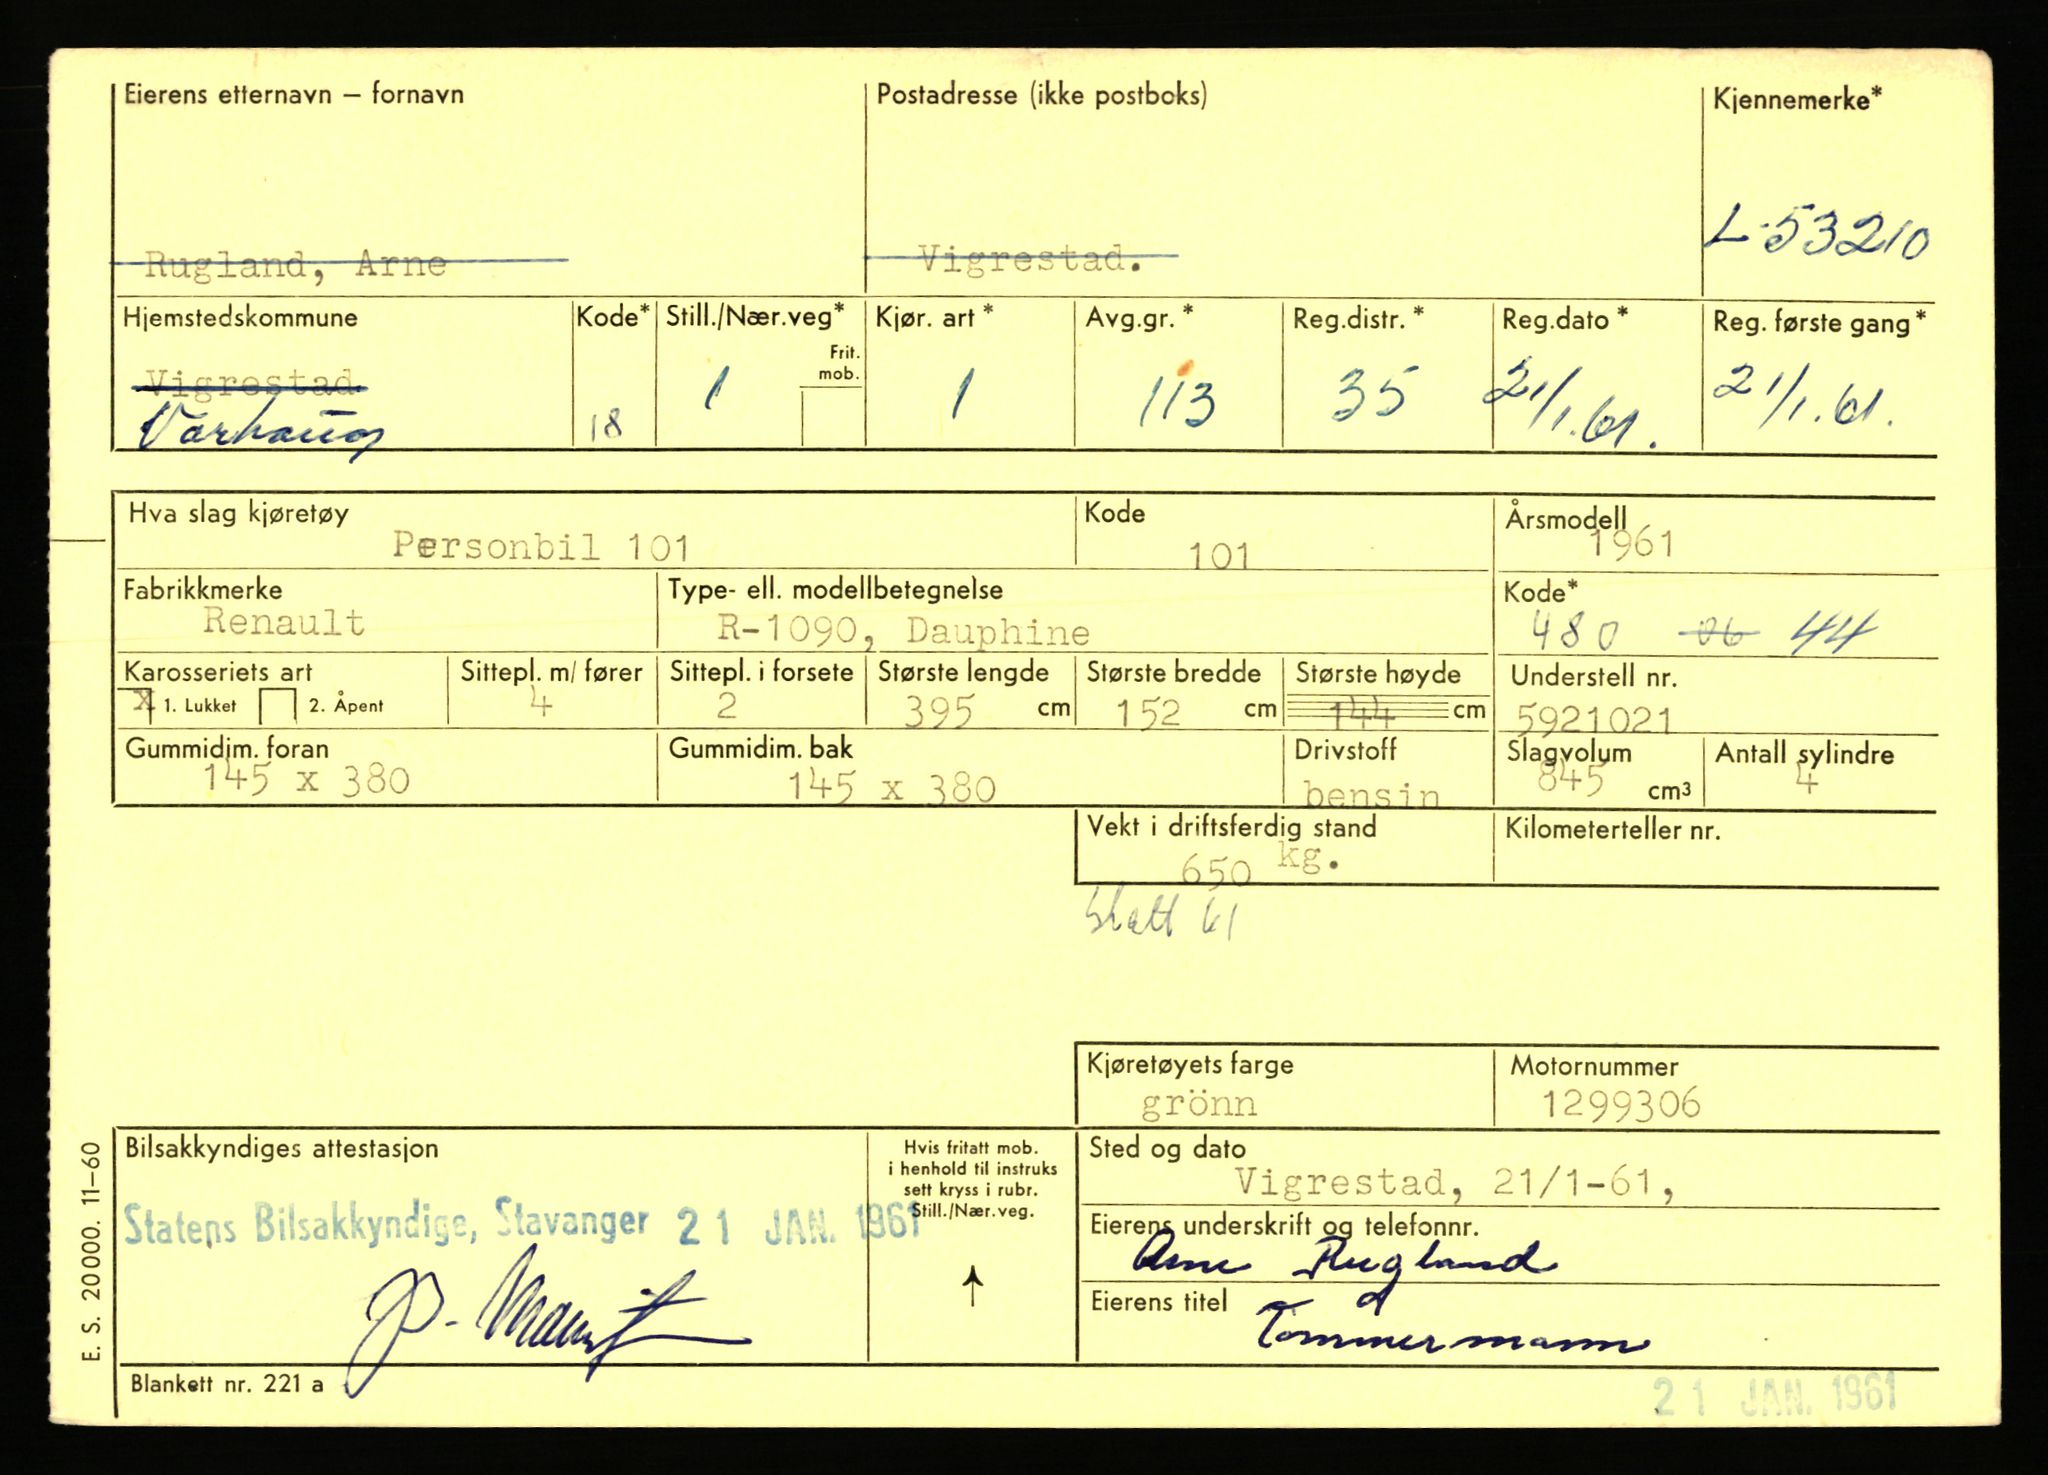 Eierens etternavn – fornavn Postadresse (ikke postboks) Kjennemerke*
L-53210
Rugland, Arne Vigrestad.
Hjemstedskommune Kode* Still./Nær.veg* Kjør. art* Avg.gr.* Reg.distr.* Reg.dato* Reg. første gang*
Frit.
mob.
Vigrestad
Varhaug 18 1 1 113 35 21/1.61. 21/1.61.
Hva slag kjøretøy Kode Årsmodell
Personbil 101 101 1961
Fabrikkmerke Type- ell. modellbetegnelse Kode*
Renault R-1090, Dauphine 480 06 44
Karosseriets art Sittepl. m/ fører Sittepl. i forsete Største lengde Største bredde Største høyde Understell nr.
X 1. Lukket 2. Åpent 4 2 395 cm 152 cm 144 cm 5921021
Gummidim. foran Gummidim. bak Drivstoff Slagvolum Antall sylindre
145 x 380 145 x 380 bensin 845 cm³ 4
Vekt i driftsferdig stand Kilometerteller nr.
650 kg.
61
Kjøretøyets farge Motornummer
grönn 1299306
Bilsakkyndiges attestasjon Hvis fritatt mob.
i henhold til instruks
sett kryss i rubr.
Still./Nær.veg.
Sted og dato
Vigrestad, 21/1-61,
Statens Bilsakkyndige, Stavanger 21 JAN. 1961
Eierens underskrift og telefonnr.
Arne Rugland
Eierens titel
Tømmermann
Blankett nr. 221 a
21 JAN. 1961
E. S. 20000. 11–60